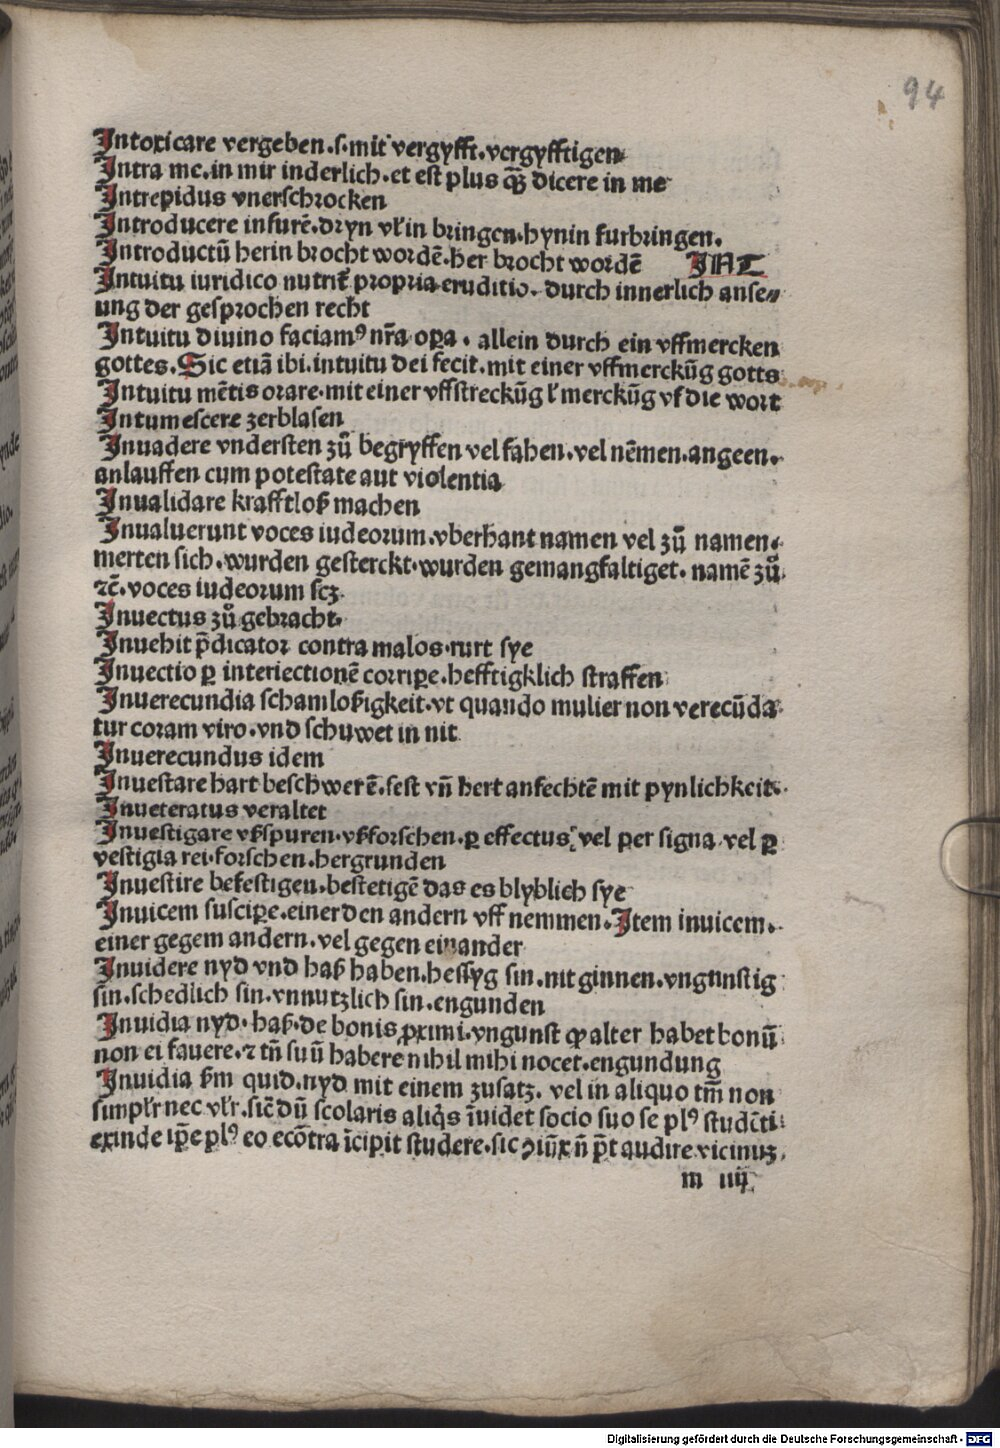 94
Intoxicare vergeben.s.mit vergyfft.vergyfftigen
Intra me.in mir inderlich.et est plus qȝ dicere in me
Intrepidus vnerschrocken
Introducere infurē.dryn vł in bringen.hynin furbringen.
Introductū herin brocht wordē.her brocht wordē INT
Intuitu iuridico nutrit̄ propria eruditio. durch innerlich anse⸗
ung der gesprochen recht
Intuitu diuino faciamꝰ nr̄a oꝑa. allein durch ein vffmercken
gottes.Sic etiā ibi.intuitu dei fecit.mit einer vffmerckūg gotts
Intuitu mētis orare.mit einer vffstreckūg ł merckūg vf die wort
Intumescere zerblasen
Inuadere vndersten zů begryffen vel fahen.vel nēmen.angeen.
anlauffen cum potestate aut violentia
Inualidare krafftloß machen
Inualuerunt voces iudeorum.vberhant namen vel zů namen.
merten sich.wurden gesterckt.wurden gemangfaltiget. namē zů
ꝛc̄.voces iudeorum scȝ
Inuectus zů gebracht.
Inuehit p̄dicator contra malos.rurt sye
Inuectio ꝑ interiectionē corriꝑe.hefftigklich straffen
Inuerecundia schamloßigkeit.vt quando mulier non verecūda
tur coram viro.vnd schuwet in nit
Inuerecundus idem
Inuestare hart beschwerē.fest vn̄ hert anfechtē mit pynlichkeit.
Inueteratus veraltet
Inuestigare vßspuren.vßforschen.ꝑ effectus vel per signa.vel ꝑ
vestigia rei.forschen.hergrunden
Inuestire befestigen.bestetigē das es blyblich sye
Inuicem susciꝑe.einer den andern vff nemmen.Item inuicem.
einer gegem andern.vel gegen einander
Inuidere nyd vnd haß haben.hessyg sin.nit ginnen.vngunstig
sin.schedlich sin.vnnutzlich sin.engunden
Inuidia nyd.haß.de bonis ꝓximi.vngunst ꝙ alter habet bonū
non ei fauere.⁊ tn̄ suū habere nihil mihi nocet.engundung
Inuidia ßm quid.nyd mit einem zusatz. vel in aliquo tm̄ non
simpłr nec vłr.sic̄ dū scolaris aliqͥs īuidet socio suo se plꝰ studēti
exinde ip̄e plꝰ eo ecōtra īcipit studere.sic ꝯiūx n̄ p̄t audire vicinuȝ
m iiij
Digitalisierung gefördert durch die Deutsche Forschungsgemeinschaft - DFG